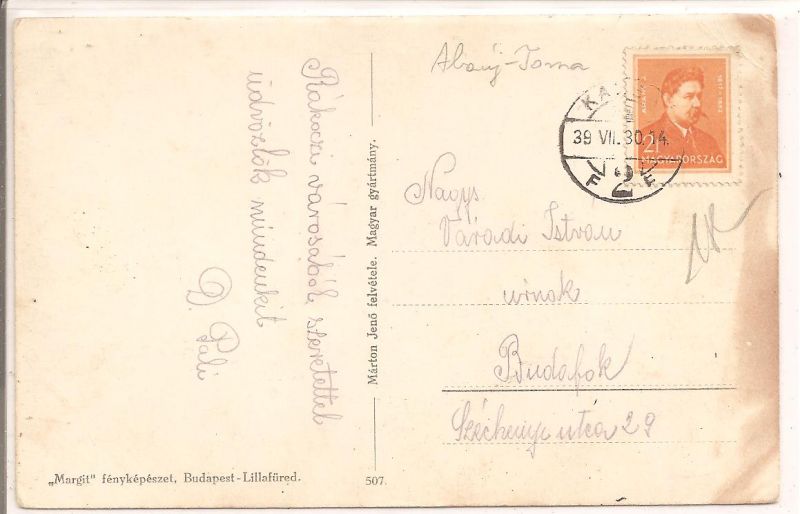 Rákoczi városából szeretettel
üdvözlök mindenkit
D. Pali
Márton Jenő felvétele. Magyar gyártmány.
„Margit" fényképészet, Budapest-Lillafüred.
507.
Abaúj-Torna
39 VII. 30. 14.
2
F E
2f
MAGYARORSZÁG
Nagys.
Váradi Istvan
urnak
Budafok
Széchenyi utca 29